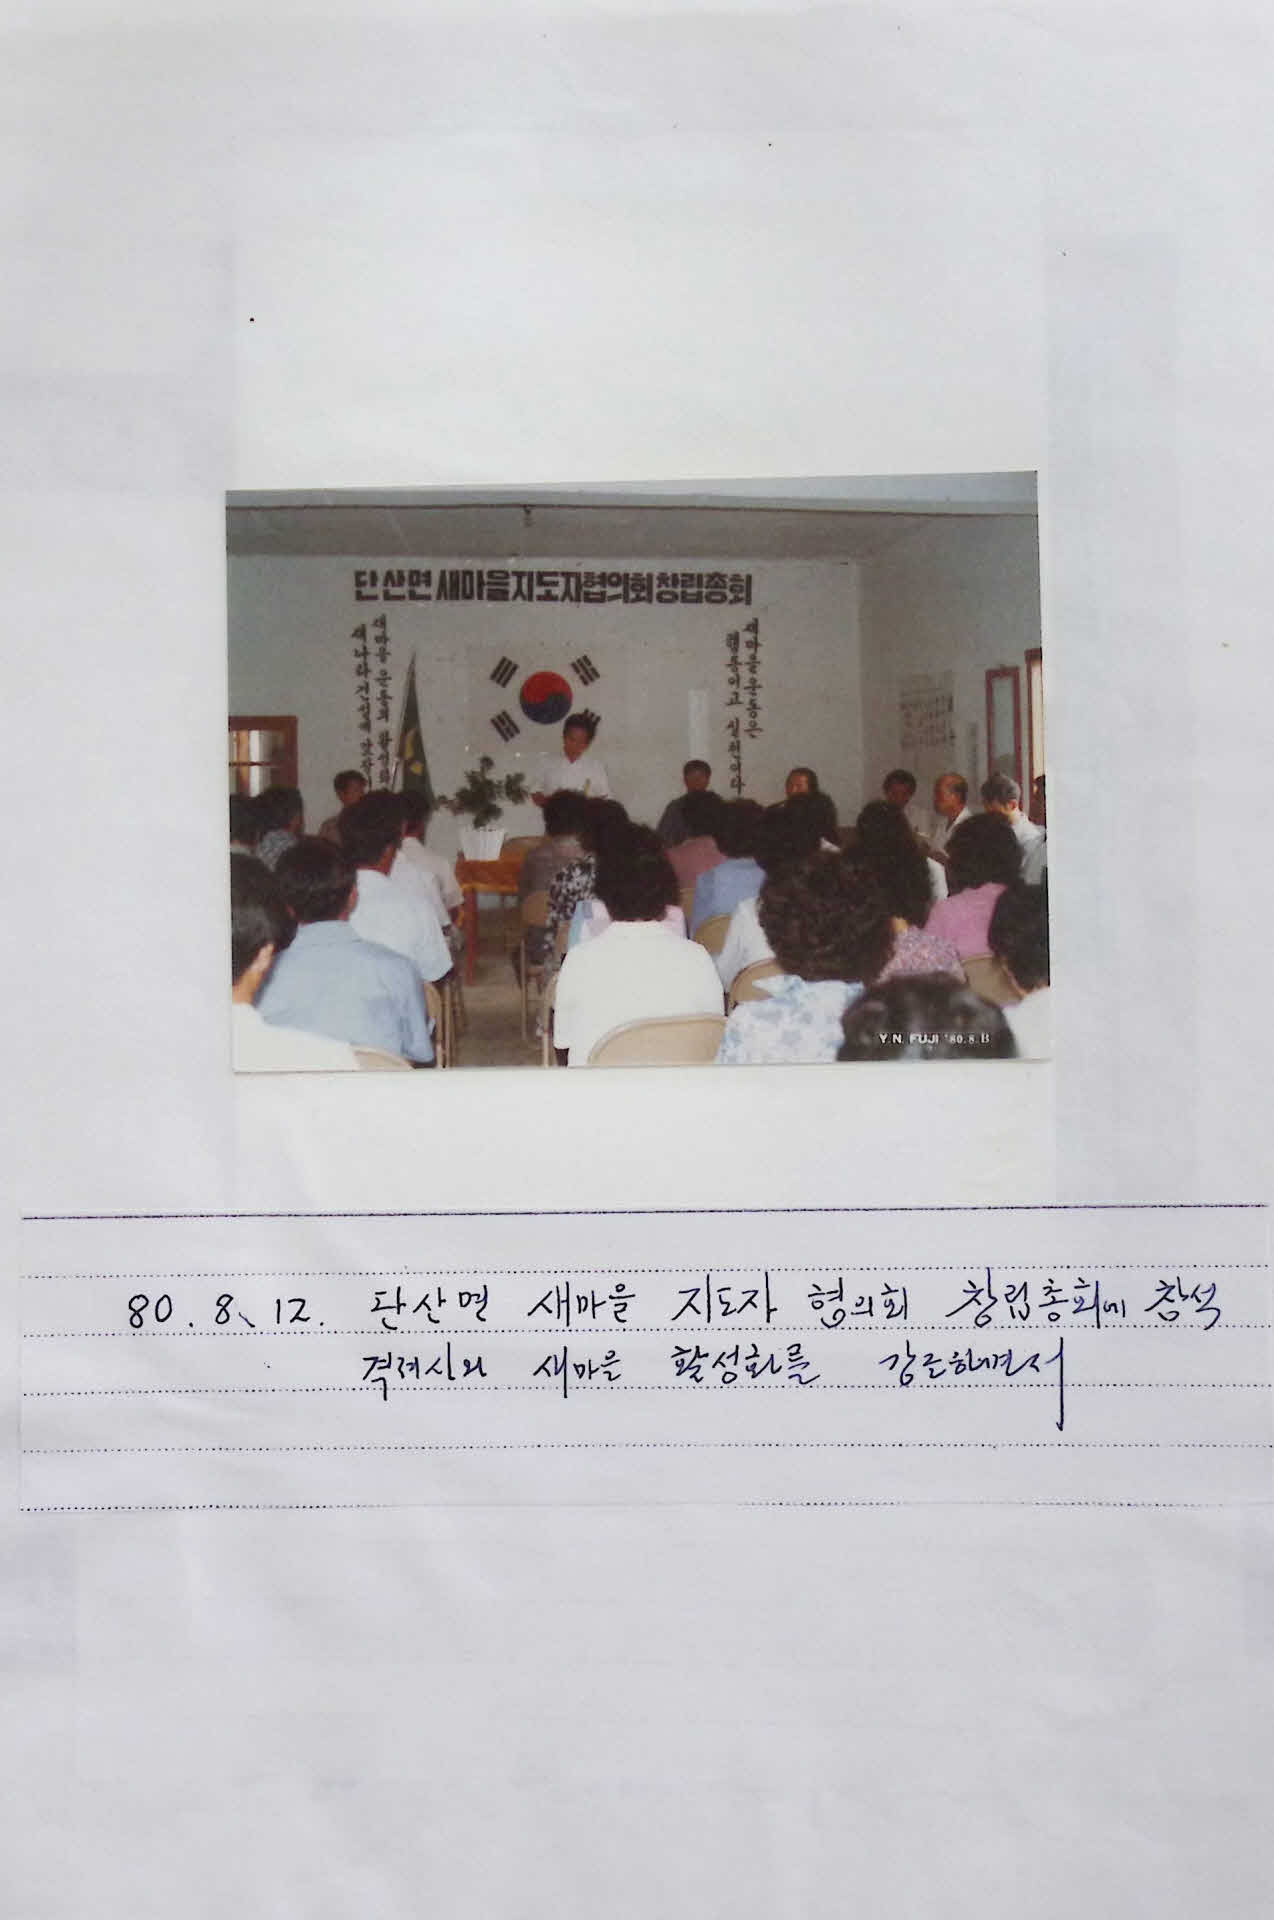 단산면새마을지도자협의회창립총회
새마을운동은
행동이고 실천이다
새마을운동의 활성화
새나라건설에 앞장
Y.N. FUJI '80.8.13
80.8.12. 단산면 새마을 지도자 협의회 창립총회에 참석
격려사와 새마을 활성화를 강조하면서